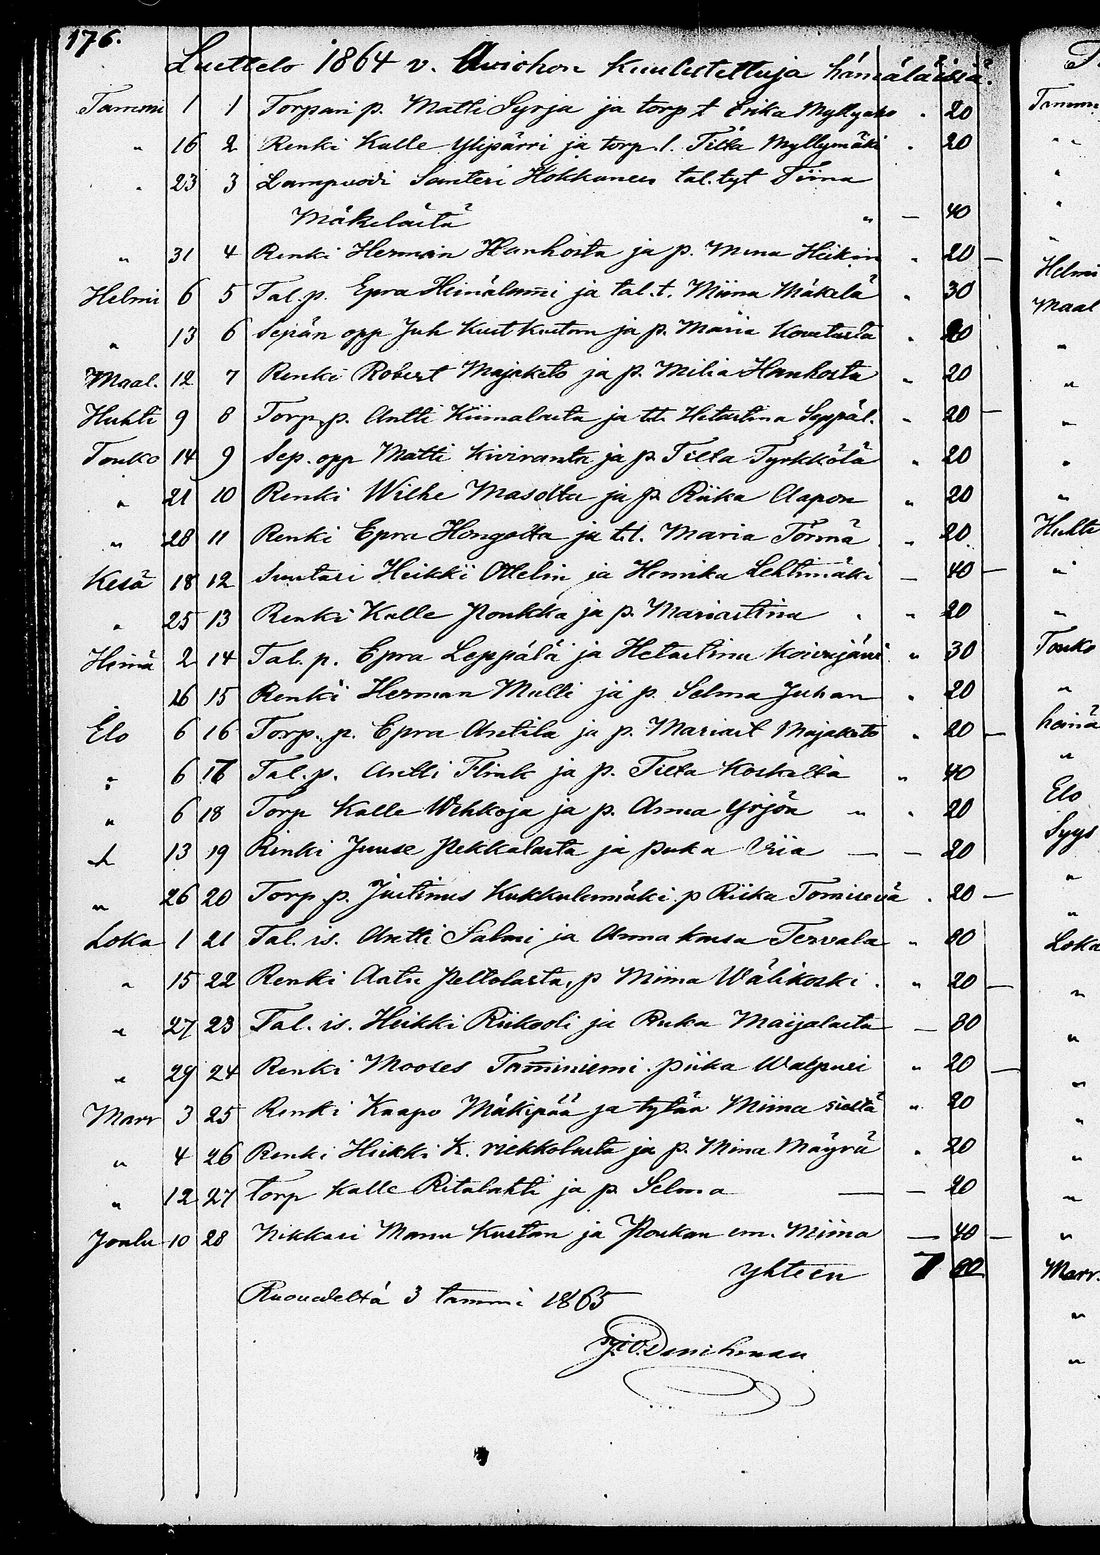 176.
Luettelo 1864 v. Aviohon Kuulutettuja hämäläisiä.
Tammi 1 1 Torpari p. Matti Syrja ja torp t Erika Myllyaho " 20
" 16 2 Renki Kalle Ylipärri ja torp. t. Tilta Myllymäki " 20
" 23 3 Lampuodi Santeri Hokkanen tal. tyt Tiina
Mäkelästä " — 40
" 31 4 Renki Herman Hanhosta ja p. Mina Heikin " 20 —
Helmi 6 5 Tal. p. Epra Heinäluomi ja tal. t. Miina Mäkelä " 30
" 13 6 Sepän opp Juh Kust Kustom ja p. Maria " 20
Maal. 12 7 Renki Robert Majaketo ja p. Milia Hanhosta " 20
Huhti 9 8 Torp. p. Antti Kiimalasta ja tt. Hetastina Seppäl. " 20 —
Touko 14 9 Sep. opp Matti Kiviranta ja p. Tilta Tyrkkölä " 20
" 21 10 Renki Wilhe ja p Riika Aapon " 20
" 28 11 Renki Epra Hongolta ja t.t. Maria Törmä " 20
Kesä 18 12 Suutari Heikki Ottelin ja Henrika Lehtimäki — 40 —
" 25 13 Renki Kalle Ponkka ja p. Mariastina " " 20
Heinä 2 14 Tal. p. Epra Leppälä ja Hetastina Koivujärvi " 30
16 15 Renki Herman Mulli ja p. Selma Juhan " 20
Elo 6 16 Torp. p. Epra Antila ja p. Mariast Majaketo " 20 —
" 6 17 Tal. p. Antti Flink ja p. Tilta Koskelta " 40
" 6 18 Torp Kalle Wihkoja ja p. Anna Yrjön " " 20
13 19 Renki Juuse Pekkalasta ja piika — — 20
" 26 20 Torp. p. Justinus Kukkulanmäki p Riika " 20 —
Loka 1 21 Tal. is. Antti Salmi ja Anna Kaisa Tervala " 80
" 15 22 Renki Aatu Peltolasta, p Miina Wälikoski " 20 —
" 27 23 Tal. is. Heikki ja Ruka Maijalasta — 80
" 29 24 Renki Mooses Tamminiemi piika Walpuri " 20 —
Marr 3 25 Renki Kaapo Mäkipää ja tytär Miina sieltä " 20
" 4 26 Renki Heikki K. riekkolasta ja p. Mina Mäyrä " 20
" 12 27 Torp Kalle Ritalahti ja p. Selma — — 20
Joulu 10 28 Nikkari Manu Kustan ja Poukan em. Miina — 40 —
yhteen 7 80
Ruovedeltä 3 tammi 1865
Tammi
"
"
"
Helmi
Maal
"
"
"
"
"
Huhti
"
"
Touko
"
heinä
"
Elo
Syys
"
"
Loka
"
"
"
"
"
"
"
Marr.
"
"